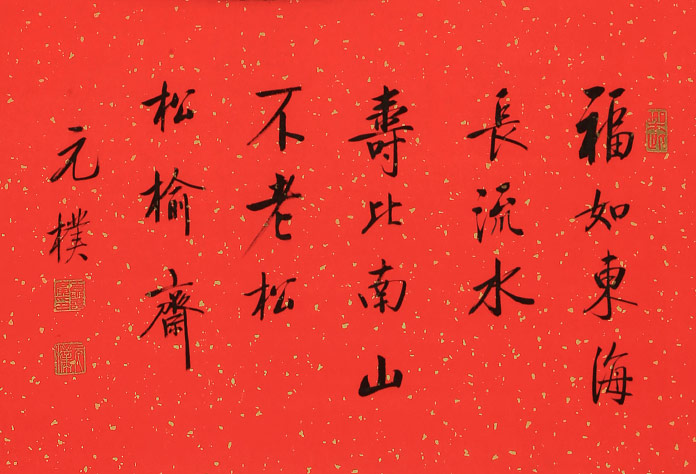 福如東海
長流水
壽比南山
不老松
松榆齋
元樸